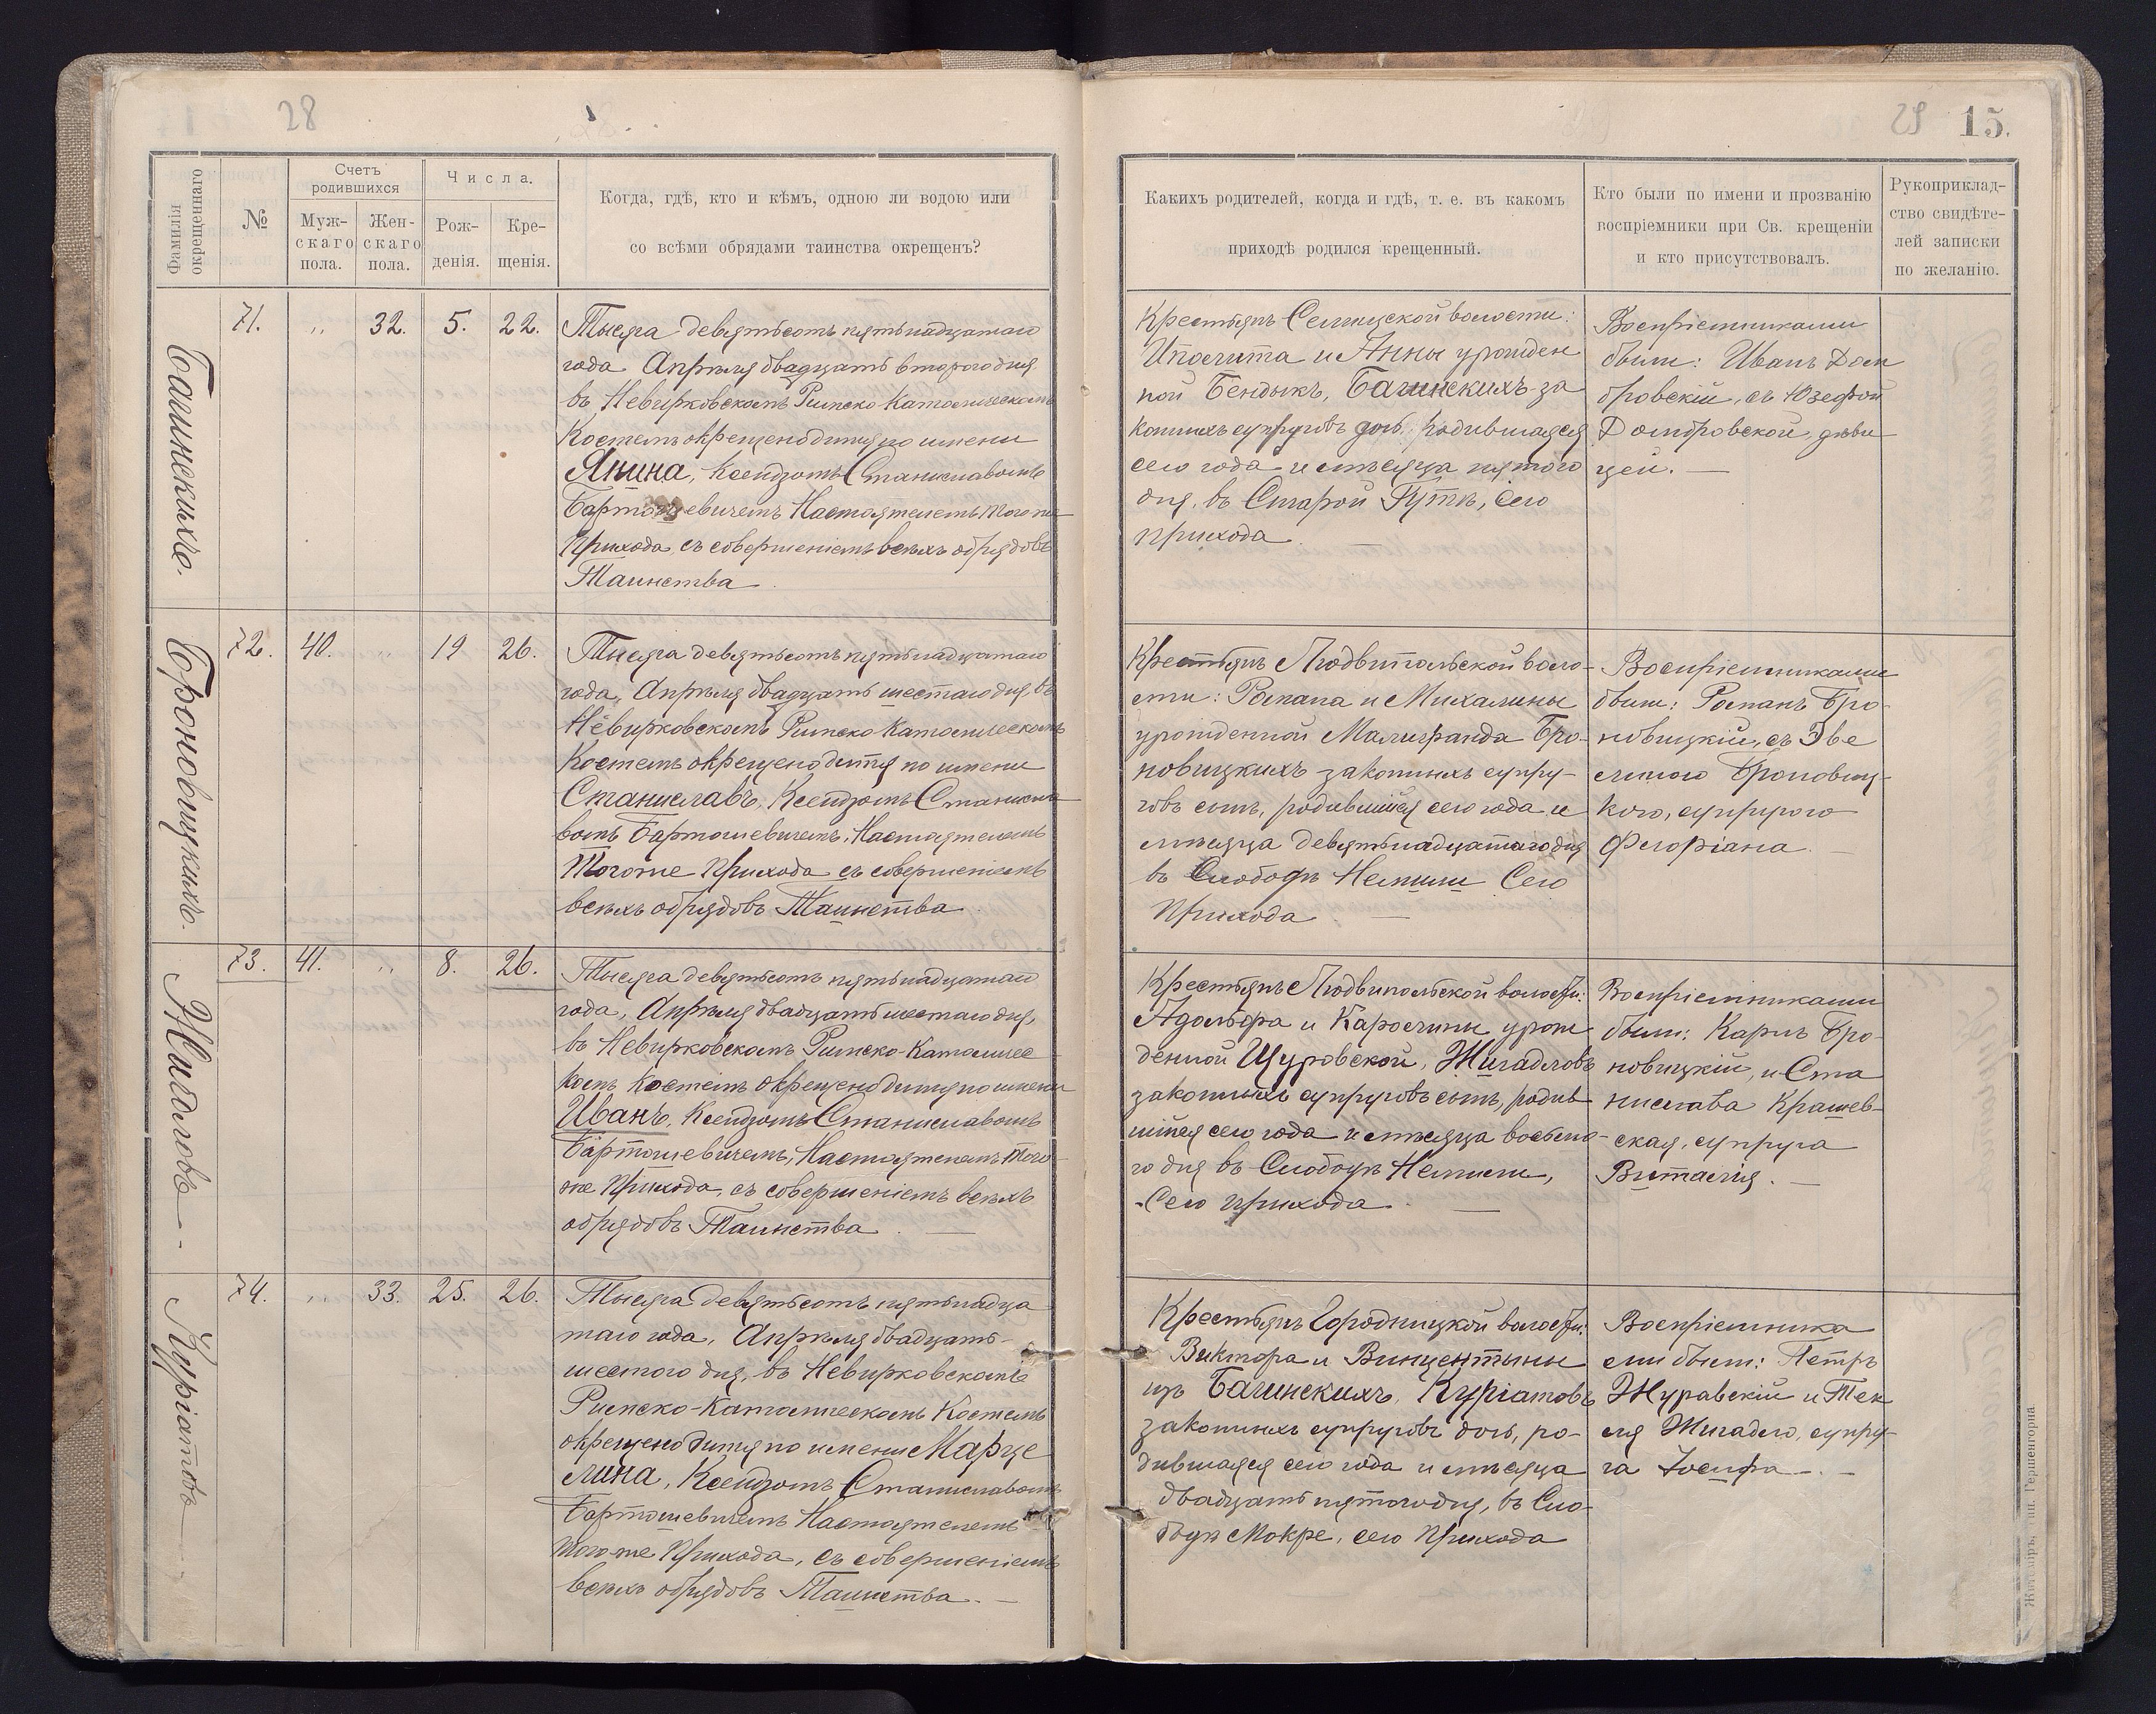 28
29 15.
Фамилія окрещеннаго
№
Счетъ родившихся
Муж-скаго пола.
Жен-скаго пола.
Числа.
Рож-денія.
Кре-щенія.
Когда, гдѣ, кто и кѣмъ, одною ли водою или
со всѣми обрядами таинства окрещенъ?
Какихъ родителей, когда и гдѣ, т. е. въ какомъ
приходѣ родился крещенный.
Кто были по имени и прозванію
воспріемники при Св. крещеніи
и кто присутствовалъ.
Рукоприклад-
ство свидѣте-
лей записки
по желанію.
Багинскихъ.
71. " 32. 5. 22.
Тысяча девятьсотъ пятьнадцатаго
года Апрѣля двадцать второго дня
въ Невирковскомъ Римско Католическомъ
Костелѣ окрещено дитя по имени
Янина, Ксендзомъ Станиславомъ
Бартошевичемъ Настоятелемъ того же
Прихода, съ совершеніемъ всѣхъ обрядовъ
Таинства
Крестьянъ Селищской волости:
Иполита и Анны урожден
ной Бендыкъ, Багинскихъ за
конныхъ супруговъ дочь, родившаяся
сего года и мѣсяца пятого
дня, въ Старой Гутѣ, сего
прихода. —
Воспріемниками
были: Иванъ Дом
бровскій, съ Юзефой
Домбровской, дѣви
цей. —
Броновицкихъ.
72. 40. " 19 26.
Тысяча девятьсотъ пятьнадцатаго
года, Апрѣля двадцать шестаго дня, въ
Невирковскомъ Римско Католическомъ
Костелѣ окрещено дитя по имени
Станиславъ, Ксендзомъ Станисла
вомъ Бартошевичемъ, Настоятелемъ
Тогоже Прихода съ совершеніемъ
всѣхъ обрядовъ Таинства
Крестьянъ Людвипольской воло-
сти: Романа и Михалины
урожденной Малигранда Бро-
новицкихъ законныхъ супру-
говъ сынъ, родившійся сего года и
мѣсяца девятьнадцатаго дня
въ Слободѣ Немили Сего
Прихода. —
Воспріемниками
были: Романъ Бро-
новицкій, съ Эве
линою Броновиц-
кою, супругою
Флоріана. —
Жигадловъ -
73. 41. " 8. 26.
Тысяча девятьсотъ пятьнадцатаго
года, Апрѣля двадцать шестаго дня,
въ Невирковскомъ Римско-Католичес
комъ Костелѣ окрещено дитя по имени
Иванъ, Ксендзомъ Станиславомъ
Бартошевичемъ, Настоятелемъ того
же Прихода, съ совершеніемъ всѣхъ
обрядовъ Таинства. —
Крестьянъ Людвипольской волости:
Адольфа и Каролины урож
денной Щуровской, Жигадловъ
законныхъ супруговъ сынъ, родив
шійся сего года и мѣсяца восьма-
го дня въ Слободѣ Немили,
Сего прихода. —
Воспріемниками
были: Карлъ Бро-
новицкій, и Ста
нислава Крашев-
ская, супруга
Виталія. —
Куріатовъ
74. " 33. 25. 26.
Тысяча девятьсотъ пятьнадца
таго года, Апрѣля двадцать
шестого дня, въ Невирковскомъ
Римско-Католическомъ Костелѣ
окрещено дитя по имени Марце
лина, Ксендзомъ Станиславомъ
Бартошевичемъ Настоятелемъ
того-же Прихода, съ совершеніемъ
всѣхъ обрядовъ Таинства. —
Крестьянъ Городницкой волости:
Виктора и Винцентыны
изъ Багинскихъ, Куріатовъ
законныхъ супруговъ дочь, ро-
дившаяся сего года и мѣсяца
двадцать пятого дня, въ Сло-
бодѣ Мокре, сего Прихода
Воспріемника
ми были: Петръ
Журавскій и Тек
ля Жигадло, супру-
га Іосифа. —
Житоміръ, тип. Гершенгорна